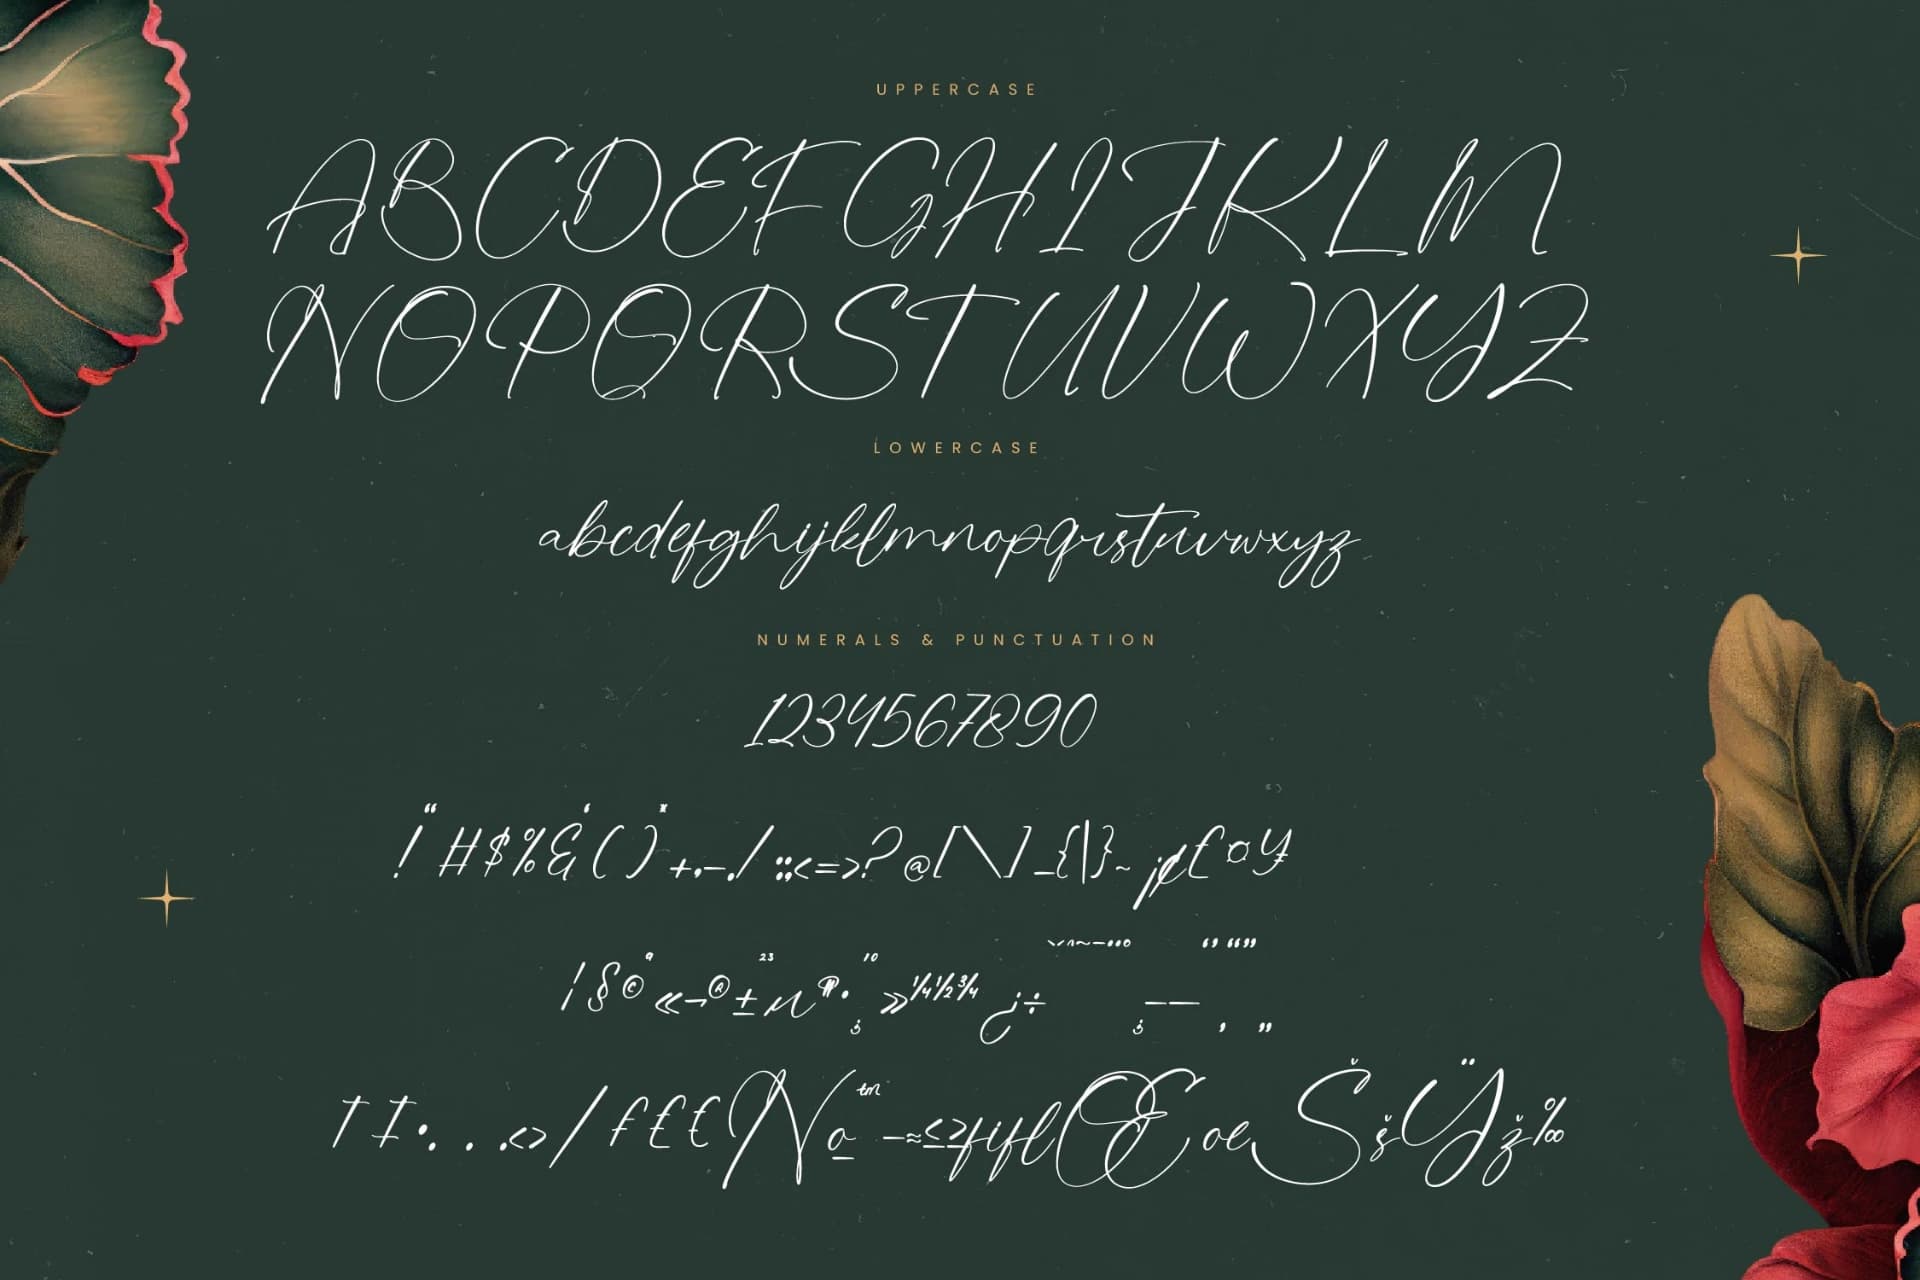 UPPERCASE
ABCDEFGHIJKLM
NOPQRSTUVWXYZ
LOWERCASE
abcdefghijklmnopqrstuvwxyz
NUMERALS & PUNCTUATION
1234567890
!“#$%&‘()*+,-./:;<=>?@[\]_{|}~¡¢£¤¥
¦§©ª«¬®±²³µ¶·¸¹º»¼½¾¿÷ˇˆ˜¯˛–—‘’‚“”„
†‡•…‹›⁄ƒ₤€№™−≈≤≥fiflŒœŠšŸž‰